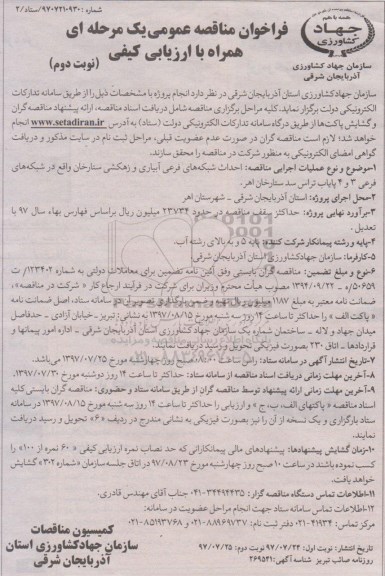 شماره : ۹۳۰-۹۷۰۷۲۱/ستاد/۲
همه با هم
جهاد
کشاورزی
سازمان جهاد کشاورزی
آذربایجان شرقی
فراخوان مناقصه عمومی یک مرحله ای
همراه با ارزیابی کیفی
(نوبت دوم)
سازمان جهادکشاورزی استان آذربایجان شرقی در نظر دارد انجام پروژه با مشخصات ذیل را از طریق سامانه تدارکات
الکترونیکی دولت برگزار نماید. کلیه مراحل برگزاری مناقصه شامل دریافت اسناد مناقصه، ارائه پیشنهاد مناقصه گران
و گشایش پاکت‌ها از طریق درگاه سامانه تدارکات الکترونیکی دولت (ستاد) به آدرس www.setadiran.ir انجام
خواهد شد؛ لازم است مناقصه گران در صورت عدم عضویت قبلی، مراحل ثبت نام در سایت مذکور و دریافت
گواهی امضای الکترونیکی به منظور شرکت در مناقصه را محقق سازند.
۱-موضوع و نوع عملیات اجرایی مناقصه: احداث شبکه‌های فرعی آبیاری و زهکشی ستارخان واقع در شبکه‌های
فرعی ۳ و ۴ پایاب تراس سد ستارخان اهر.
۲-محل اجرای پروژه: استان آذربایجان شرقی - شهرستان اهر
۳-برآورد نهایی پروژه: حداکثر سقف مناقصه در حدود ۲۳۷۳۴ میلیون ریال براساس فهارس بهاء سال ۹۷ با
تعدیل .
۴-پایه و رشته پیمانکار شرکت کننده: پایه ۵ و به بالای رشته آب.
۵-کارفرما: سازمان جهادکشاورزی استان آذربایجان شرقی.
۶-نوع و مبلغ تضمین: مناقصه گران بایستی وفق آئین نامه تضمین برای معاملات دولتی به شماره ۱۲۳۴۰۲/ت
۵۰۶۵۹ه مورخ ۱۳۹۴/۰۹/۲۲ مصوب هیأت محترم وزیران برای شرکت در فرآیند ارجاع کار « شرکت در مناقصه»،
ضمانت نامه معتبر به مبلغ ۱۱۸۷ میلیون ریال تهیه و ضمن بارگذاری تصویر آن در سامانه ستاد، اصل ضمانت نامه
« پاکت الف » را حداکثر تا ساعت ۱۴ روز سه شنبه مورخ ۱۳۹۷/۰۸/۱۵ به نشانی: تبریز- خیابان آزادی - حدفاصل
میدان جهاد و لاله - ساختمان شماره یک سازمان جهادکشاورزی استان آذربایجان شرقی - اداره امور پیمانها و
قراردادها - اتاق ۲۳۰ بصورت فیزیکی تحویل و رسید دریافت نمایند.
۷-تاریخ انتشار آگهی در سامانه ستاد: رأس ساعت ۸:۰۰ صبح روز چهارشنبه مورخ ۱۳۹۷/۰۷/۲۵ می‌باشد.
۸-آخرین مهلت زمانی دریافت اسناد مناقصه از سامانه ستاد: حداکثر تا ساعت ۱۴ روز دوشنبه مورخ ۱۳۹۷/۰۷/۳۰.
۹-آخرین مهلت زمانی ارائه پیشنهاد توسط مناقصه گران از طریق سامانه ستاد و حضوری: مناقصه گران بایستی کلیه
اسناد مناقصه « پاکتهای الف، ب، ج » و ارزیابی را حداکثر تا ساعت ۱۴ روز سه شنبه مورخ ۱۳۹۷/۰۸/۱۵ در سامانه
ستاد بارگزاری و یک نسخه از آن را نیز بصورت فیزیکی به نشانی مندرج در ردیف «۶» تحویل و رسید دریافت
نمایند.
۱۰-زمان گشایش پیشنهادها: پیشنهادهای مالی پیمانکارانی که حد نصاب نمره ارزیابی کیفی « ۶۰ نمره از ۱۰۰» را
کسب نموده باشند در ساعت ۱۰ صبح روز چهارشنبه مورخ ۹۷/۰۸/۲۳ در اتاق جلسه سازمان «شماره ۳۰۲» گشایش
خواهد یافت.
۱۱-اطلاعات تماس دستگاه مناقصه گزار : ۳۴۴۹۴۴۳۵-۰۴۱ جناب آقای مهندس قادری.
۱۲-اطلاعات تماس سامانه ستاد جهت انجام مراحل عضویت در سامانه:
مرکز تماس: ۴۱۹۳۴-۰۲۱ دفتر ثبت نام: ۸۸۹۶۹۷۳۷-۰۲۱ و ۸۵۱۹۳۷۶۸-۰۲۱
تاریخ انتشار: نوبت اول: ۹۷/۰۷/۲۴ نوبت دوم: ۹۷/۰۷/۲۵
روزنامه صائب تبریز شناسه آگهی: ۲۶۹۵۴۱
کمیسیون مناقصات
سازمان جهادکشاورزی استان
آذربایجان شرقی